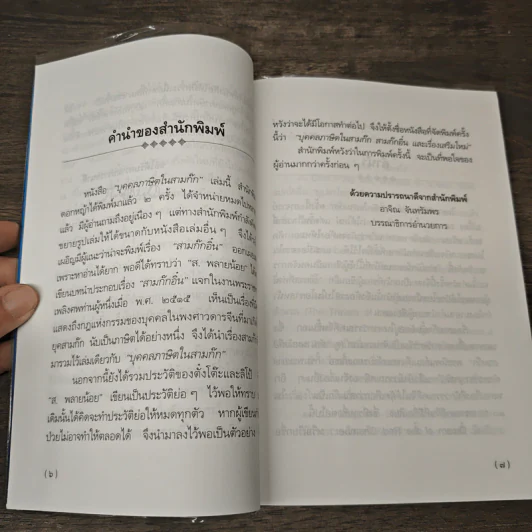 คำนำของสำนักพิมพ์
หนังสือ "บุคคลภาษิตในสามก๊ก" เล่มนี้ สำนัก
ดอกหญ้าได้พิมพ์มาแล้ว ๒ ครั้ง ได้จำหน่ายหมดไป
แล้ว มีผู้อ่านถามถึงอยู่เนือง ๆ แต่ทางสำนักพิมพ์กำลัง
ขยายรูปเล่มให้ได้ขนาดกับหนังสือเล่มอื่น ๆ จึงได้
เผอิญมีผู้แนะว่าน่าจะพิมพ์เรื่อง "สามก๊กอิ๋น" ออก
เพราะหาอ่านได้ยาก พอดีได้ทราบว่า "ส. พลายน้อย" ได้
เขียนบทนำประกอบเรื่อง "สามก๊กอิ๋น" แจกในงานพระราช
เพลิงศพท่านผู้หนึ่งเมื่อ พ.ศ. ๒๕๑๕ เห็นเป็นเรื่อง
แสดงถึงกฎแห่งกรรมของบุคคลในพงศาวดารจีนที่มา
ยุคสามก๊ก นับเป็นภาษิตได้อย่างหนึ่ง จึงได้นำเรื่องสามก๊ก
มารวมไว้เล่มเดียวกับ "บุคคลภาษิตในสามก๊ก"
นอกจากนี้ยังได้รวมประวัติของตั๋งโต๊ะและลิโป้
"ส. พลายน้อย" เขียนเป็นประวัติย่อ ๆ ไว้พอให้ทราบ
เดิมนั้นได้คิดจะทำประวัติย่อให้หมดทุกตัว หากผู้เขียน
ป่วยไม่อาจทำให้ตลอดได้ จึงนำมาลงไว้พอเป็นตัวอย่าง
(๖)
หวังว่าจะได้มีโอกาสทำต่อไป จึงให้ตั้งชื่อหนังสือที่จัดพิมพ์ครั้ง
นี้ว่า "บุคคลภาษิตในสามก๊ก สามก๊กอิ๋น และเรื่องเสริมใหม่"
สำนักพิมพ์หวังว่าในการพิมพ์ครั้งนี้ จะเป็นที่พอใจของ
ผู้อ่านมากกว่าครั้งก่อน ๆ
ด้วยความปรารถนาดีจากสำนักพิมพ์
อาจิณ จันทรัมพร
บรรณาธิการอำนวยการ
(๗)